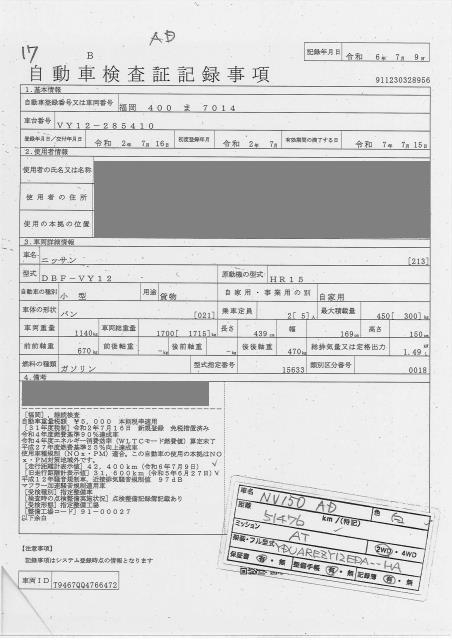 17
B
AD
記録年月日 令和 6年 7月 9日
自動車検査証記録事項
911230328956
1.基本情報
自動車登録番号又は車両番号 福岡 400 ま 7014
車台番号 VY12-285410
登録年月日/交付年月日 令和 2年 7月16日 初度登録年月 令和 2年 7月 有効期間の満了する日 令和 7年 7月15日
2.使用者情報
使用者の氏名又は名称
使用者の住所
使用の本拠の位置
3.車両詳細情報
車名 ニッサン [213]
型式 DBF-VY12 原動機の型式 HR15
自動車の種別 小型 用途 貨物 自家用・事業用の別 自家用
車体の形状 バン [021] 乗車定員 2[ 5]人 最大積載量 450[ 300]kg
車両重量 1140kg 車両総重量 1700[ 1715]kg 長さ 439cm 幅 169cm 高さ 150cm
前前軸重 670kg 前後軸重 -kg 後前軸重 -kg 後後軸重 470kg 総排気量又は定格出力 1.49L
燃料の種類 ガソリン 型式指定番号 15633 類別区分番号 0018
4.備考
[福岡],継続検査
自動車重量税額 ¥5,000 本則税率適用
[31年度税制]令和2年7月16日 新規登録 免税措置済み
令和4年度燃費基準90%達成車
令和4年度エネルギー消費効率(WLTCモード燃費値)算定未了
平成27年度燃費基準25%向上達成車
使用車種規制(NOx・PM)適合。この自動車の使用の本拠はNO
x・PM対策地域外です。
[走行距離計表示値]42,400km(令和6年7月9日)
[旧走行距離計表示値]31,600km(令和5年6月27日)
平成12年騒音規制車、近接排気騒音規制値 97dB
マフラー加速騒音規制適用車
[受検種別]指定整備車
[検査時の点検整備実施状況]点検整備記録簿記載あり
[受検形態]指定整備工場
[整備工場コード]91-00027
以下余白
車名 NV150 AD
距離 51476 km/(特記) 色 白
ミッション AT 2WD・4WD
類装・フル型式
保証書 有・無 整備手帳 有・無 記録簿 有・無
【注意事項】
記録事項はシステム登録時点の情報となります
車両ID T9467QQ4766472